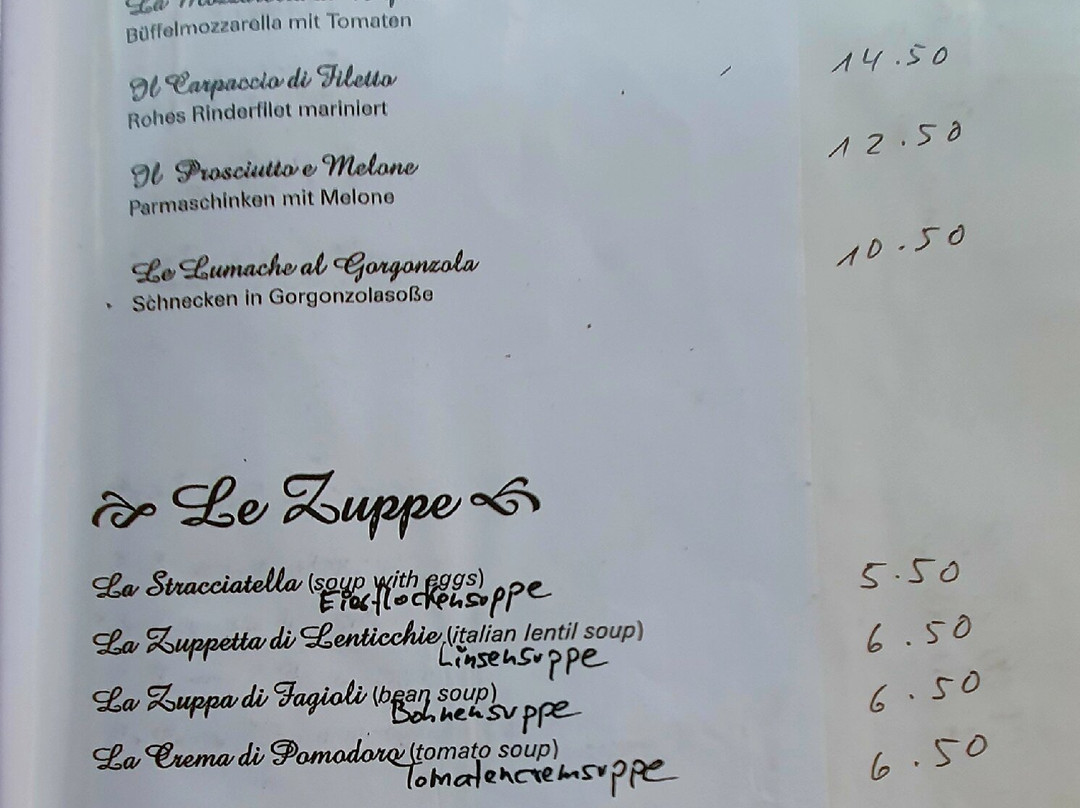 La Mozzarella di
Büffelmozzarella mit Tomaten
Il Carpaccio di Filetto 14.50
Rohes Rinderfilet mariniert
Il Prosciutto e Melone 12.50
Parmaschinken mit Melone
Le Lumache al Gorgonzola 10.50
Schnecken in Gorgonzolasoße
Le Zuppe
La Stracciatella (soup with eggs) 5.50
Eierflockensuppe
La Zuppetta di Lenticchie (italian lentil soup) 6.50
Linsensuppe
La Zuppa di Fagioli (bean soup) 6.50
Bohnensuppe
La Crema di Pomodoro (tomato soup) 6.50
Tomatencremsuppe